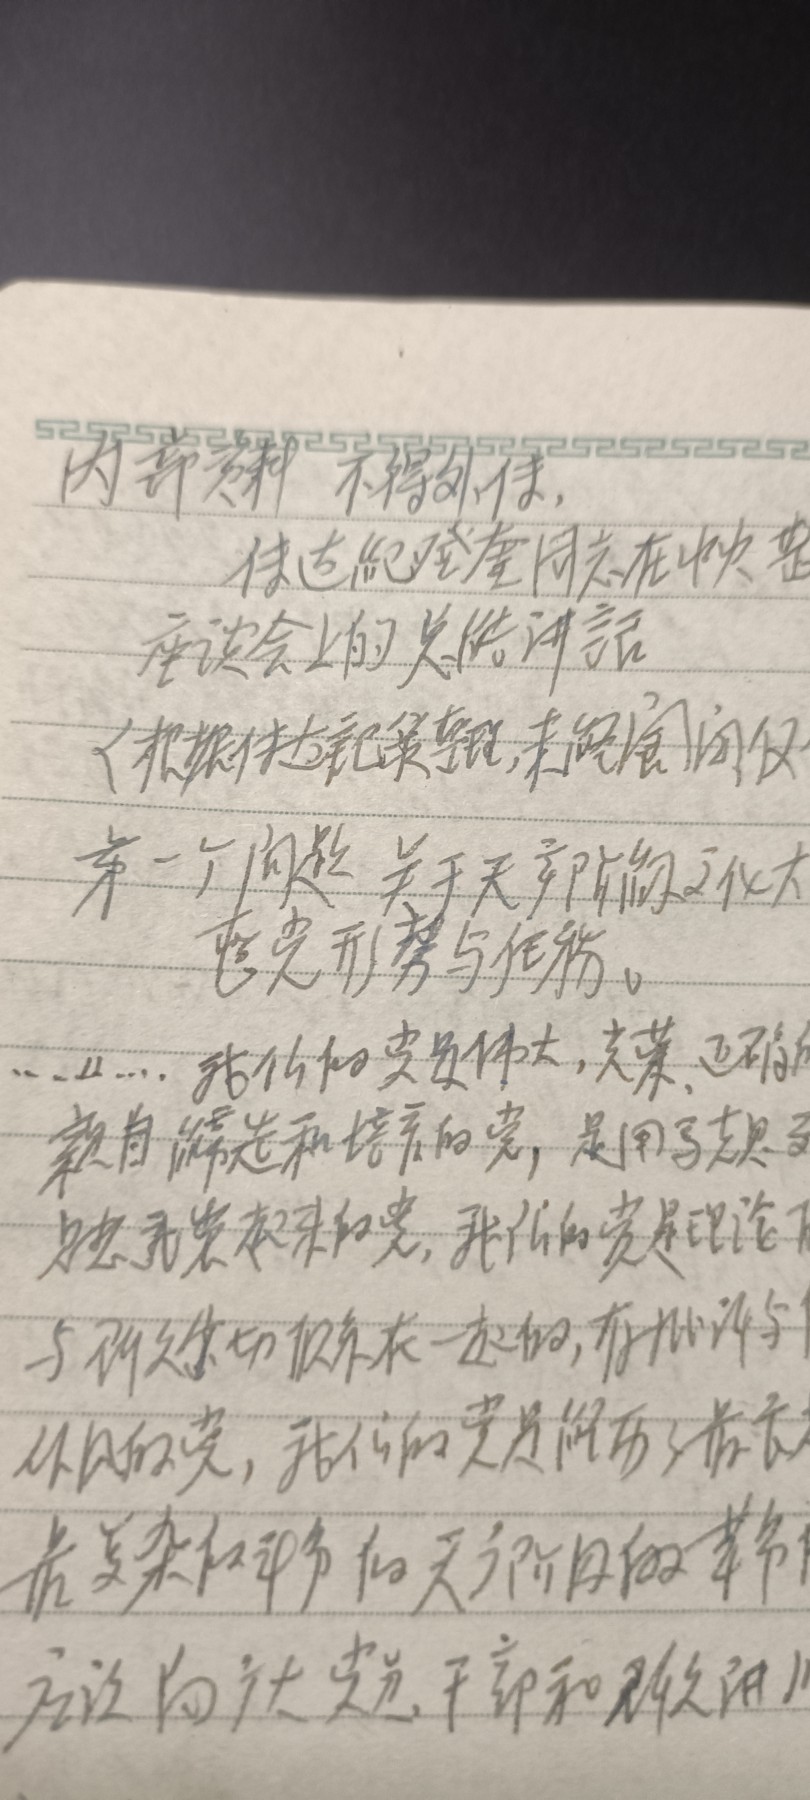 内部资料 不得外传,
传达纪登奎同志在中央
座谈会上的总结讲話
(根据传达記录整理,未经审阅仅
第一个问题 关于无产阶级文化大
整党形势与任务。
我们的党是伟大,光荣、正确的
亲自缔造和培育的党,是用马克思
思想武装起来的党,我们的党是理论
与群众密切联系在一起的,有批评与
作风的党,我们的党是经历了最长
最复杂的斗争的无产阶级的革命
应该向广大党员、干部和群众讲